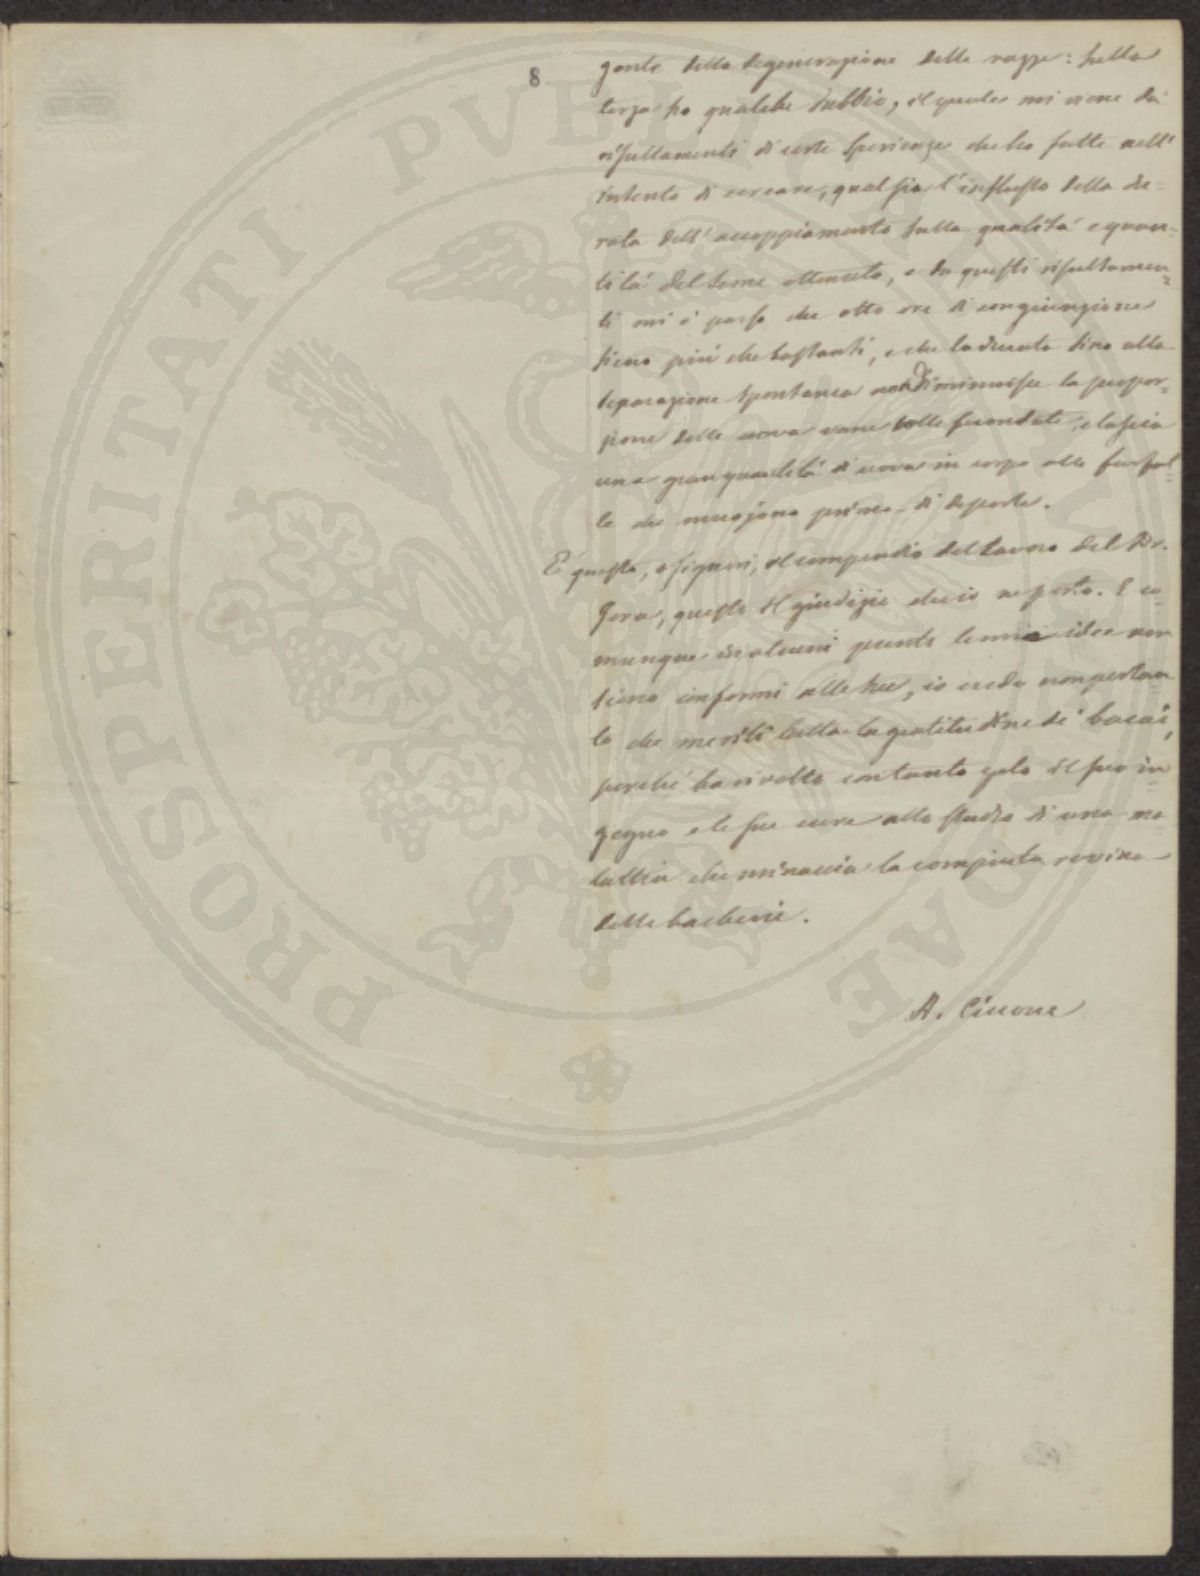 8
gonte della degenerazione delle razze: sulla
terza ho qualche dubbio, il quale mi viene da
risultamenti di certe sperienze che ho fatte nell'
intento di cercare, qual sia l'influsso della du=
rata dell'accoppiamento sulla qualità e quan=
tità del seme ottenuto, e da questi risultamen=
ti mi è parso che otto ore di congiunzione
sieno più che bastanti, e che la durata sino alla
separazione spontanea non diminuisce la propor=
zione delle uova vane colle fecondate, e lascia
una gran quantità di uova in corpo alle farfal=
le che muojono prima di deporle.
E questo, o signori, il compendio del lavoro del Dr.
Gera, questo il giudizio che io ne porto. E co=
munque in alcuni punti le mie idee non
sieno conformi alle sue, io credo non pertan=
to che meriti tutta la gratitudine de' bacai,
perché ha rivolto con tanto zelo il suo in=
gegno e le sue cure allo studio di una ma=
lattia che minaccia la compiuta rovina
delle bacherie.
A. Ciccone
PROSPERITATI PVBLICAE AVGENDAE